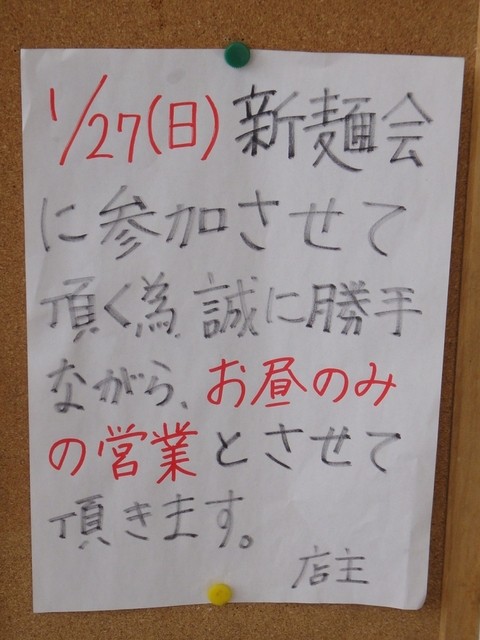 1/27(日)新麺会
に参加させて
頂く為、誠に勝手
ながら、お昼のみ
の営業とさせて
頂きます。
店主